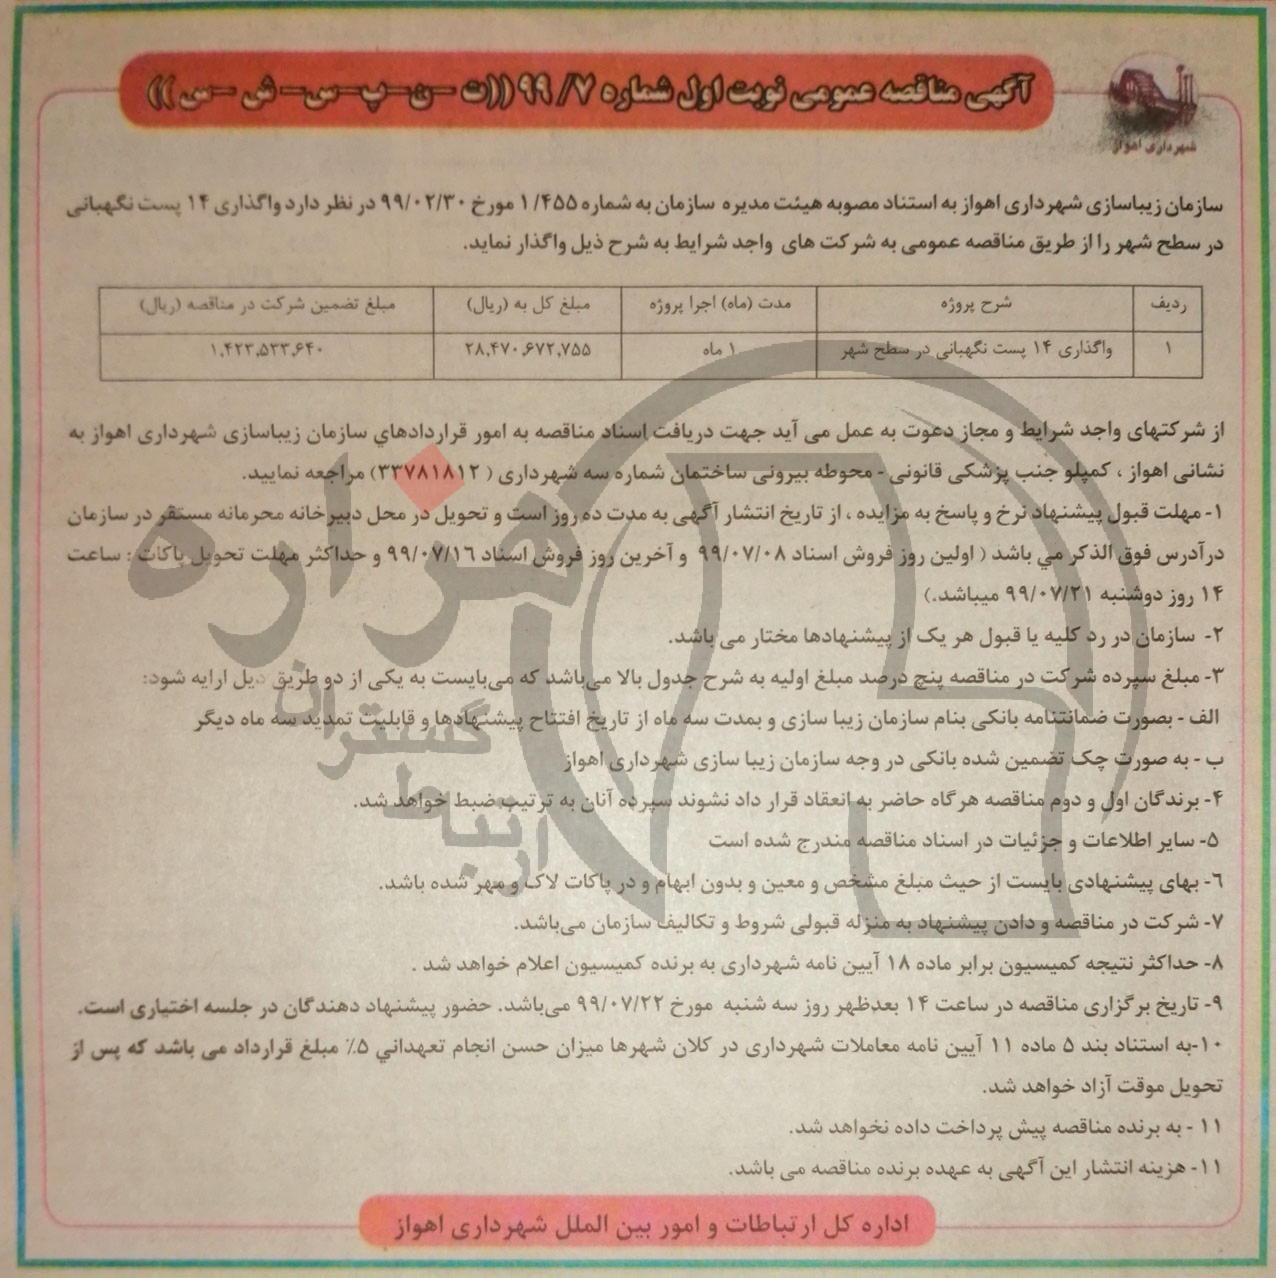 آگهی مناقصه عمومی نوبت اول شماره ۷/ ۹۹ ((ت -ن-پ-س- ش -س ))
شهرداری اهواز
سازمان زیباسازی شهرداری اهواز به استناد مصوبه هیئت مدیره سازمان به شماره ۱/۴۵۵ مورخ ۹۹/۰۲/۳۰ در نظر دارد واگذاری ۱۴ پست نگهبانی
در سطح شهر را از طریق مناقصه عمومی به شرکت های واجد شرایط به شرح ذیل واگذار نماید.
ردیف شرح پروژه مدت (ماه) اجرا پروژه مبلغ کل به (ریال) مبلغ تضمین شرکت در مناقصه (ریال)
۱ واگذاری ۱۴ پست نگهبانی در سطح شهر ۱ ماه ۲۸,۴۷۰,۶۷۲,۷۵۵ ۱,۴۲۳,۵۳۳,۶۴۰
از شرکتهای واجد شرایط و مجاز دعوت به عمل می آید جهت دریافت اسناد مناقصه به امور قراردادهاي سازمان زیباسازی شهرداری اهواز به
نشانی اهواز ، کمپلو جنب پزشکی قانونی - محوطه بیرونی ساختمان شماره سه شهرداری ( ۳۳۷۸۱۸۱۲) مراجعه نمایید.
۱- مهلت قبول پیشنهاد نرخ و پاسخ به مزایده ، از تاریخ انتشار آگهی به مدت ده روز است و تحویل در محل دبیرخانه محرمانه مستقر در سازمان
درآدرس فوق الذکر مي باشد ( اولین روز فروش اسناد ۹۹/۰۷/۰۸ و آخرین روز فروش اسناد ۹۹/۰۷/۱۶ و حداکثر مهلت تحویل پاکات : ساعت
۱۴ روز دوشنبه ۹۹/۰۷/۲۱ میباشد.)
۲- سازمان در رد کلیه یا قبول هر یک از پیشنهادها مختار می باشد.
۳- مبلغ سپرده شرکت در مناقصه پنج درصد مبلغ اولیه به شرح جدول بالا می‌باشد که می‌بایست به یکی از دو طریق ذیل ارایه شود:
الف - بصورت ضمانتنامه بانکی بنام سازمان زیبا سازی و بمدت سه ماه از تاریخ افتتاح پیشنهادها و قابلیت تمدید سه ماه دیگر
ب - به صورت چک تضمین شده بانکی در وجه سازمان زیبا سازی شهرداری اهواز
۴- برندگان اول و دوم مناقصه هرگاه حاضر به انعقاد قرار داد نشوند سپرده آنان به ترتیب ضبط خواهد شد.
۵- سایر اطلاعات و جزئیات در اسناد مناقصه مندرج شده است
۶- بهای پیشنهادی بایست از حیث مبلغ مشخص و معین و بدون ابهام و در پاکات لاک و مهر شده باشد.
۷- شرکت در مناقصه و دادن پیشنهاد به منزله قبولی شروط و تکالیف سازمان می‌باشد.
۸- حداکثر نتیجه کمیسیون برابر ماده ۱۸ آیین نامه شهرداری به برنده کمیسیون اعلام خواهد شد .
۹- تاریخ برگزاری مناقصه در ساعت ۱۴ بعدظهر روز سه شنبه مورخ ۹۹/۰۷/۲۲ می‌باشد. حضور پیشنهاد دهندگان در جلسه اختیاری است.
۱۰-به استناد بند ۵ ماده ۱۱ آیین نامه معاملات شهرداری در کلان شهرها میزان حسن انجام تعهداتی ۵٪ مبلغ قرارداد می باشد که پس از
تحویل موقت آزاد خواهد شد.
۱۱ - به برنده مناقصه پیش پرداخت داده نخواهد شد.
۱۱- هزینه انتشار این آگهی به عهده برنده مناقصه می باشد.
اداره کل ارتباطات و امور بین الملل شهرداری اهواز
هزاره
گستران
ارتباط